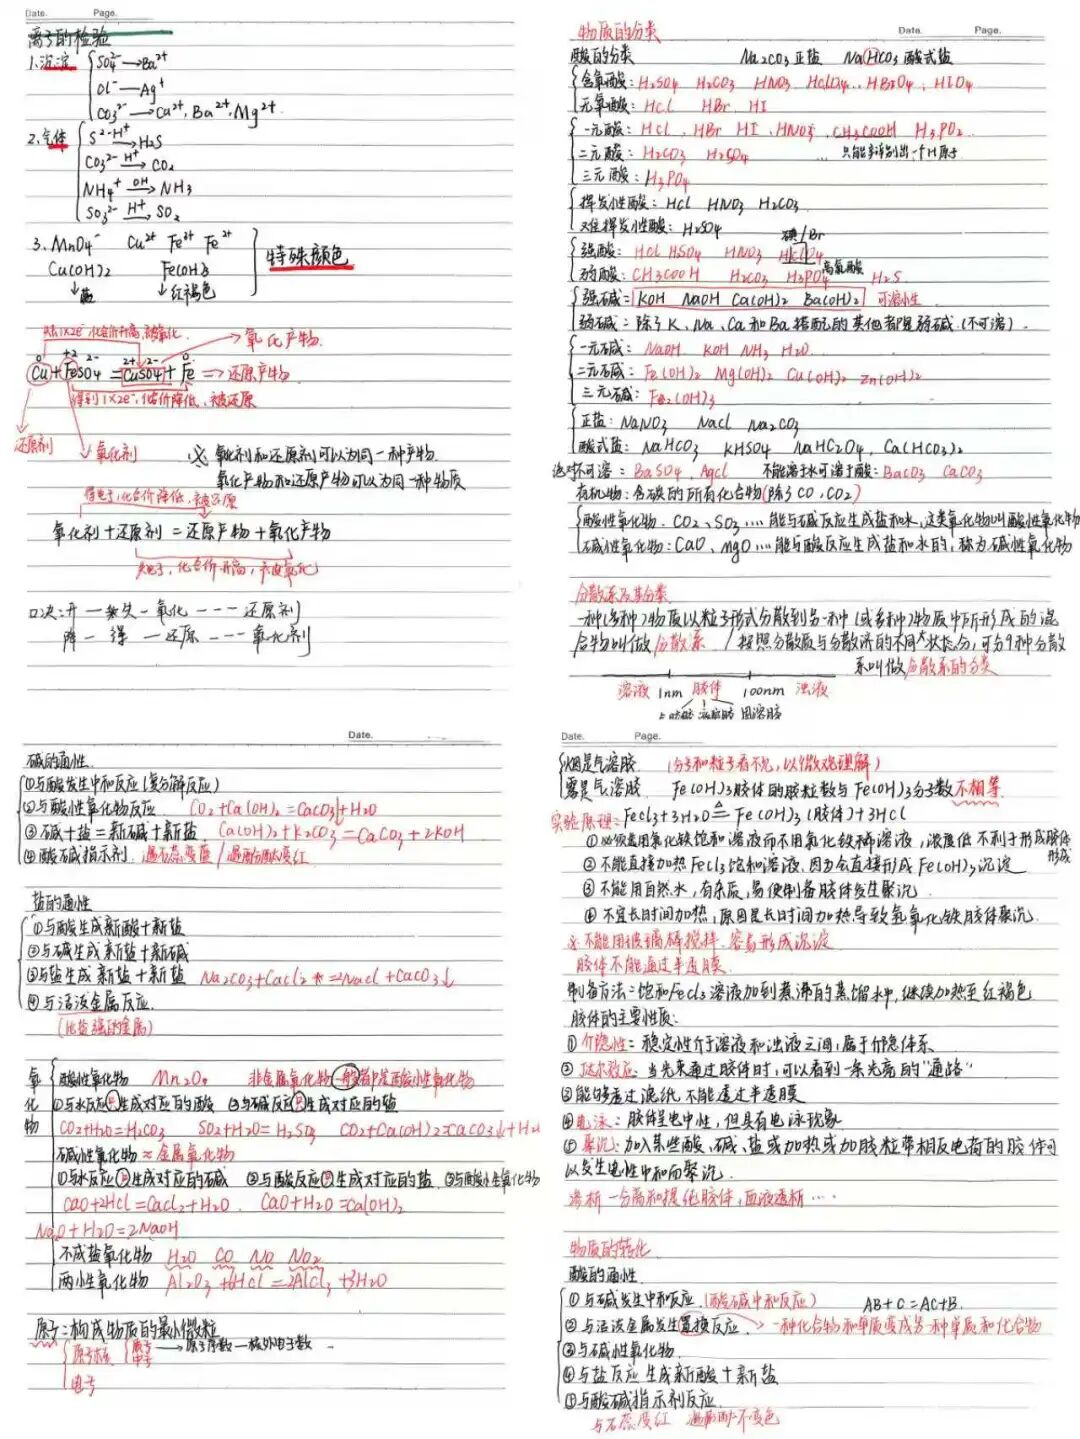 Date. Page.
离子的检验
1.沉淀 SO₄²⁻→Ba²⁺
Cl⁻→Ag⁺
CO₃²⁻→Ca²⁺、Ba²⁺、Mg²⁺
2.气体 S²⁻ H⁺→H₂S
CO₃²⁻ H⁺→CO₂
NH₄⁺ OH→NH₃
SO₃²⁻ H⁺→SO₂
3. MnO₄⁻ Cu²⁺ Fe³⁺ Fe²⁺ 特殊颜色
Cu(OH)₂ Fe(OH)₃
↓蓝 ↓红褐色
失去1×2e⁻ 化合价升高,被氧化 → 氧化产物
0 +2 2- 2+ 2- 0
Cu+FeSO₄=CuSO₄+Fe ⇒还原产物
得到1×2e⁻,化合价降低、被还原
还原剂 氧化剂
※ 氧化剂和还原剂可以为同一种产物
氧化产物和还原产物可以为同一种物质
得电子,化合价降低,被还原
氧化剂+还原剂=还原产物+氧化产物
失电子,化合价升高,被氧化
口决:升一失一氧化---还原剂
降一得一还原---氧化剂
Date. Page.
物质的分类
酸的分类 Na₂CO₃正盐 NaHCO₃酸式盐
含氧酸:H₂SO₄ H₂CO₃ HNO₃ HClO₄.. HBrO₄、HIO₄
无氧酸:HCl HBr HI
一元酸:HCl、HBr HI、HNO₃、CH₃COOH H₃PO₂
二元酸:H₂CO₃ H₂SO₄ ... 只能电离出一个H原子
三元酸:H₃PO₄
挥发性酸:HCl HNO₃ H₂CO₃
难挥发性酸:H₂SO₄ 碘/Br
强酸:HCl HSO₄ HNO₃ HClO₄
高氯酸
弱酸:CH₃COOH H₂CO₃ H₃PO₄ H₂S
强碱=KOH NaOH Ca(OH)₂ Ba(OH)₂ 可溶性
弱碱=除了K、Na、Ca和Ba搭配的其他都是弱碱.(不可溶).
一元碱:NaOH KOH NH₃ H₂O
二元碱:Fe(OH)₂ Mg(OH)₂ Cu(OH)₂ Zn(OH)₂
三元碱:Fe₂(OH)₃
正盐:NaNO₃ NaCl Na₂CO₃
酸式盐:NaHCO₃ KHSO₄ NaHC₂O₄、Ca(HCO₃)₂
绝对不可溶:BaSO₄、AgCl 不能溶于水可溶于酸:BaCO₃ CaCO₃
有机物:含碳的所有化合物(除了CO、CO₂)
酸性氧化物.CO₂、SO₃....能与碱反应生成盐和水,这类氧化物叫酸性氧化物
碱性氧化物:CaO、MgO....能与酸反应生成盐和水的,称为碱性氧化物
分散系及其分类
一种(多种)物质以粒子形式分散到另一种(或多种)物质中所形成的混
合物叫做分散系 /按照分散质与分散济的不同状态分,可分9种分散
系叫做分散系的分类
溶液 1nm 胶体 100nm 浊液
固溶胶
Date.
碱的通性.
①与酸发生中和反应(复分解反应)
②与酸性氧化物反应 CO₂+Ca(OH)₂=CaCO₃↓+H₂O
③碱+盐=新碱+新盐 Ca(OH)₂+K₂CO₃=CaCO₃+2KOH
④酸碱指示剂.遇石蕊变蓝/遇酚酞变红
盐的通性
①与酸生成新酸+新盐
②与碱生成新盐+新碱
③与盐生成新盐+新盐 Na₂CO₃+CaCl₂=NaCl+CaCO₃↓
④与活泼金属反应.
(比盐强的金属)
氧化物
酸性氧化物 Mn₂O₇ 非金属氧化物一般都是酸性氧化物
①与水反应只生成对应的酸 ②与碱反应只生成对应的盐
CO₂+H₂O=H₂CO₃ SO₂+H₂O=H₂SO₃ CO₂+Ca(OH)₂=CaCO₃↓+H₂
碱性氧化物≈金属氧化物
①与水反应只生成对应的碱 ②与酸反应只生成对应的盐.③与酸性氧化物
CaO+2HCl=CaCl₂+H₂O. CaO+H₂O=Ca(OH)₂
Na₂O+H₂O=2NaOH
不成盐氧化物 H₂O CO NO NO₂
两性氧化物 Al₂O₃+6HCl=2AlCl₃+3H₂O
原子:构成物质的最小微粒
原子核 质子 中子 →原子序数—核外电子数
电子
Date. Page.
烟是气溶胶. (分子和粒子看不见,以微观理解)
雾是气溶胶. Fe(OH)₃胶体的胶粒数与Fe(OH)₃分子数不相等.
实验原理:FeCl₃+3H₂O=△Fe(OH)₃(胶体)+3HCl
①必须盖用氯化铁饱和溶液而不用氯化铁稀溶液,浓度低不利于形成胶体形成
②不能直接加热FeCl₃饱和溶液.因为会直接形成Fe(OH)₃沉淀
③不能用自然水,有杂质,易使制备胶体发生聚沉.
④不宜长时间加热,原因是长时间加热导致氢氧化铁胶体聚沉.
※不能用玻璃棒搅拌.容易形成沉淀
胶体不能通过半透膜.
制备方法=饱和FeCl₃溶液加到煮沸的蒸馏水中,继续加热至红褐色
胶体的主要性质:
①介稳性=稳定性介于溶液和浊液之间,属于介稳体系
②丁达尔效应:当光束通过胶体时,可以看到一条光亮的“通路”
③能够透过滤纸不能透过半透膜
④电泳:胶体呈电中性,但具有电泳现象
⑤聚沉:加入某些酸、碱、盐或加热或加胶粒带相反电荷的胶体可
以发生电性中和而聚沉.
渗析一分离和提纯胶体,血液透析....
物质的转化
酸的通性.
①与碱发生中和反应.(酸碱中和反应) AB+C=AC+B.
②与活泼金属发生置换反应. →一种化合物和单质变成另一种单质和化合物
③与碱性氧化物.
④与盐反应生成新酸+新盐
⑤与酸碱指示剂反应.
与石蕊变红 遇酚酞不变色